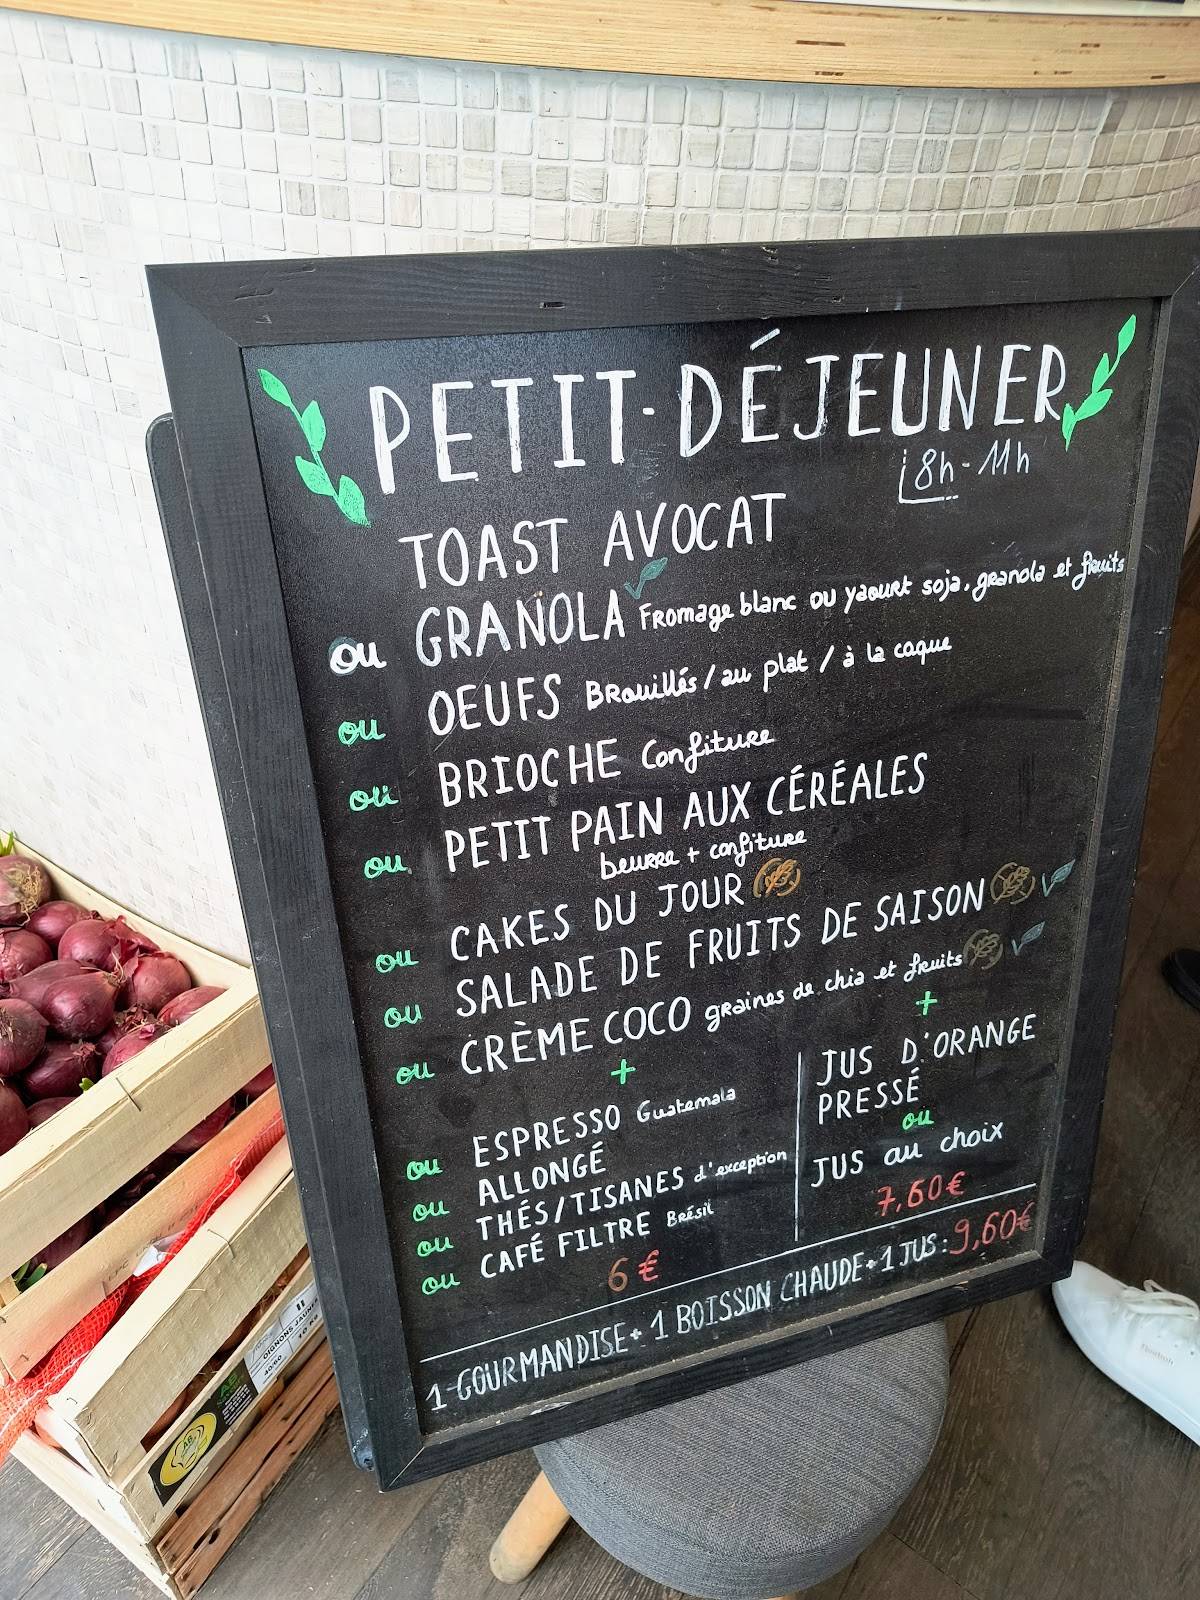 PETIT-DÉJEUNER
8h-11h
TOAST AVOCAT
ou GRANOLA Fromage blanc ou yaourt soja, granola et fruits
ou OEUFS Brouillés / au plat / à la coque
ou BRIOCHE Confiture
ou PETIT PAIN AUX CÉRÉALES
beurre + confiture
ou CAKES DU JOUR
ou SALADE DE FRUITS DE SAISON
ou CRÈME COCO graines de chia et fruits
+
ESPRESSO Guatemala
ou ALLONGÉ
ou THÉS/TISANES d'exception
ou CAFÉ FILTRE Brésil
6 €
+
JUS D'ORANGE
PRESSÉ
ou
JUS au choix
7,60€
1 GOURMANDISE + 1 BOISSON CHAUDE + 1 JUS : 9,60€
OIGNONS JAUNES
40/60 10 KG
AB
Reebok